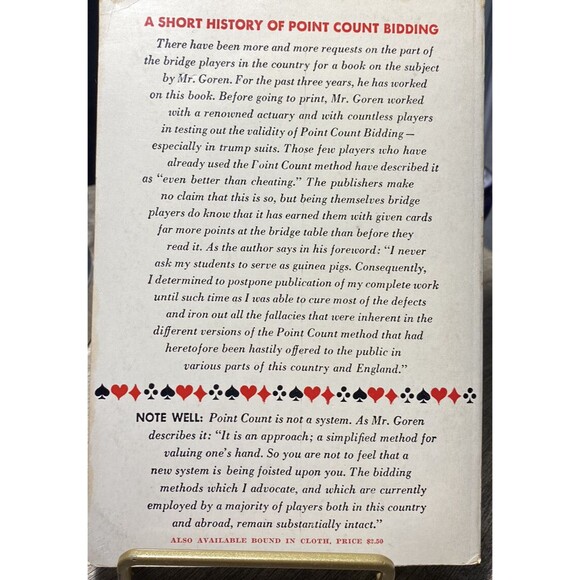 A SHORT HISTORY OF POINT COUNT BIDDING
There have been more and more requests on the part of
the bridge players in the country for a book on the subject
by Mr. Goren. For the past three years, he has worked
on this book. Before going to print, Mr. Goren worked
with a renowned actuary and with countless players
in testing out the validity of Point Count Bidding—
especially in trump suits. Those few players who have
already used the Point Count method have described it
as "even better than cheating." The publishers make
no claim that this is so, but being themselves bridge
players do know that it has earned them with given cards
far more points at the bridge table than before they
read it. As the author says in his foreword: "I never
ask my students to serve as guinea pigs. Consequently,
I determined to postpone publication of my complete work
until such time as I was able to cure most of the defects
and iron out all the fallacies that were inherent in the
different versions of the Point Count method that had
heretofore been hastily offered to the public in
various parts of this country and England."
NOTE WELL: Point Count is not a system. As Mr. Goren
describes it: "It is an approach; a simplified method for
valuing one's hand. So you are not to feel that a
new system is being foisted upon you. The bidding
methods which I advocate, and which are currently
employed by a majority of players both in this country
and abroad, remain substantially intact."
ALSO AVAILABLE BOUND IN CLOTH, PRICE $2.50